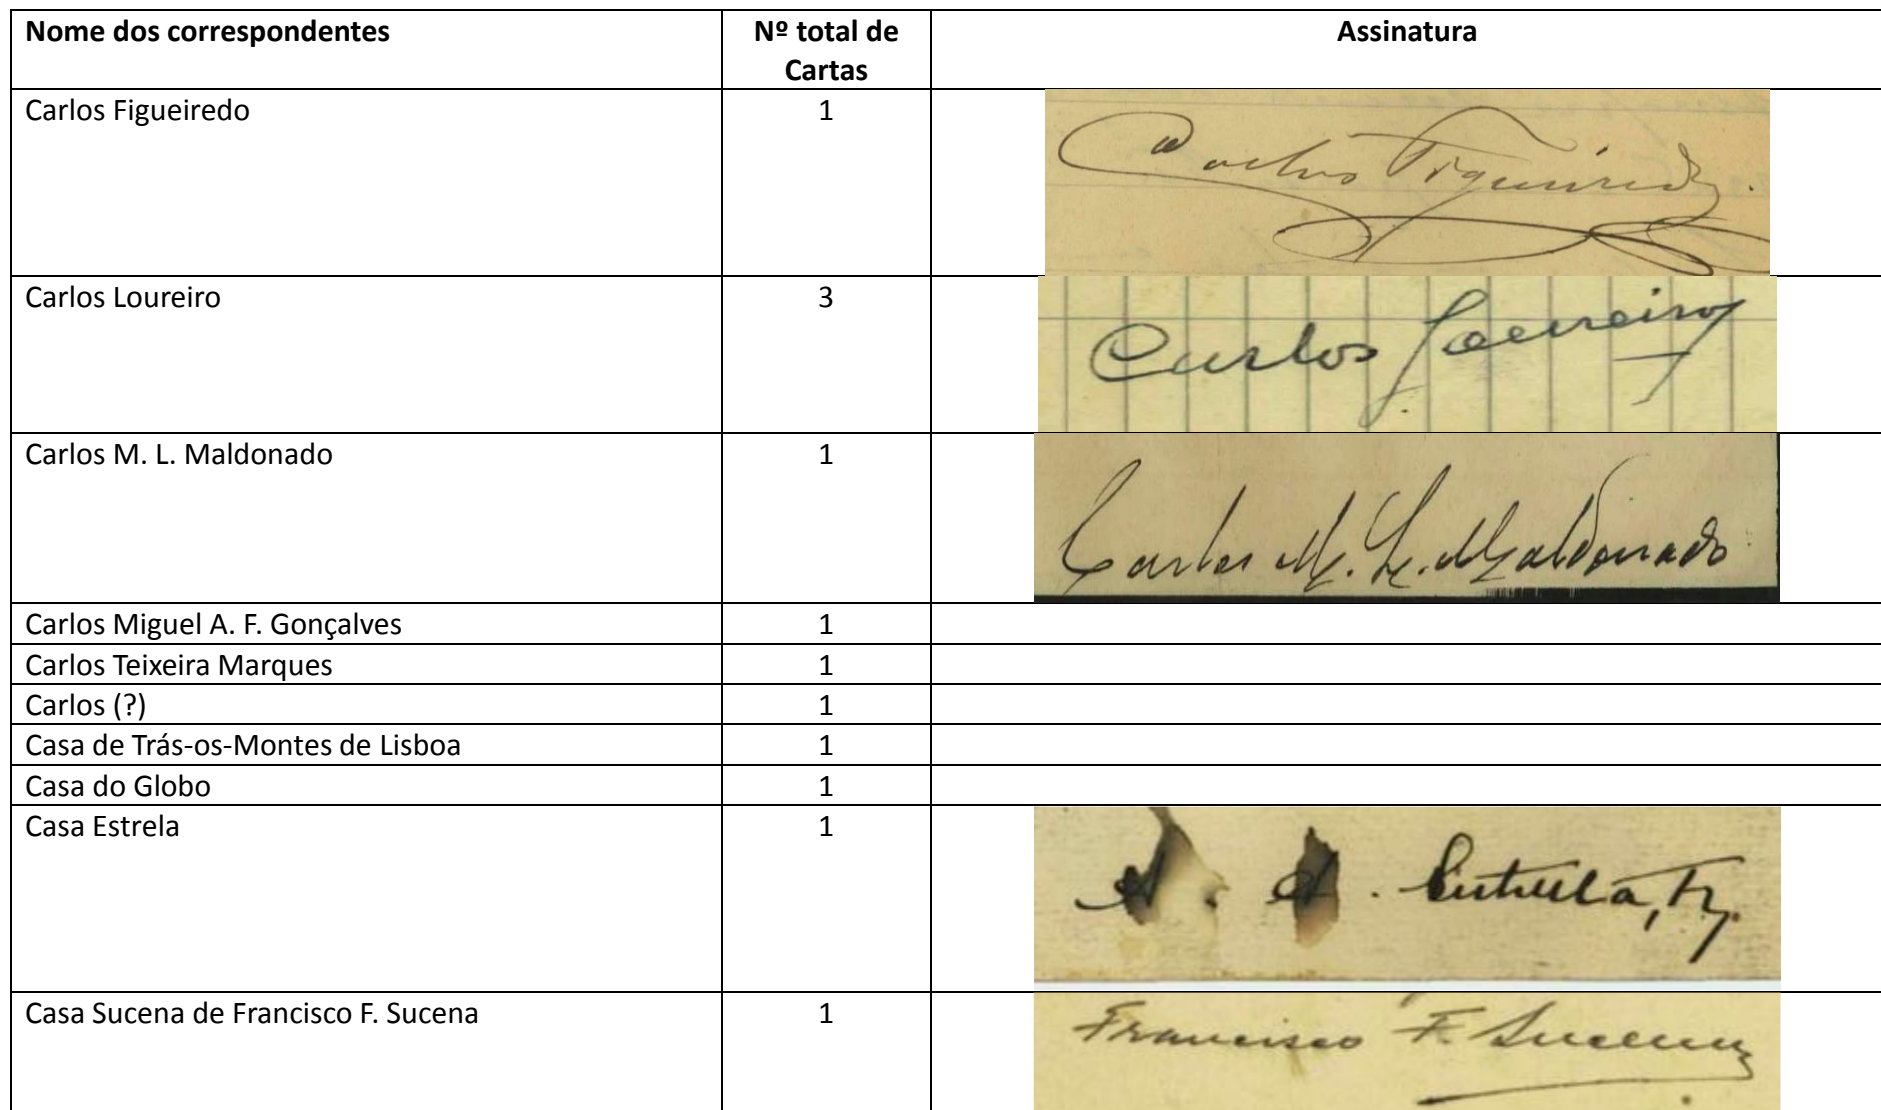 Nome dos correspondentes Nº total de Cartas Assinatura
Carlos Figueiredo 1 Carlos Figueiredo
Carlos Loureiro 3 Carlos Loureiro
Carlos M. L. Maldonado 1 Carlos M. L. Maldonado
Carlos Miguel A. F. Gonçalves 1
Carlos Teixeira Marques 1
Carlos (?) 1
Casa de Trás-os-Montes de Lisboa 1
Casa do Globo 1
Casa Estrela 1
Casa Sucena de Francisco F. Sucena 1 Francisco F. Sucena